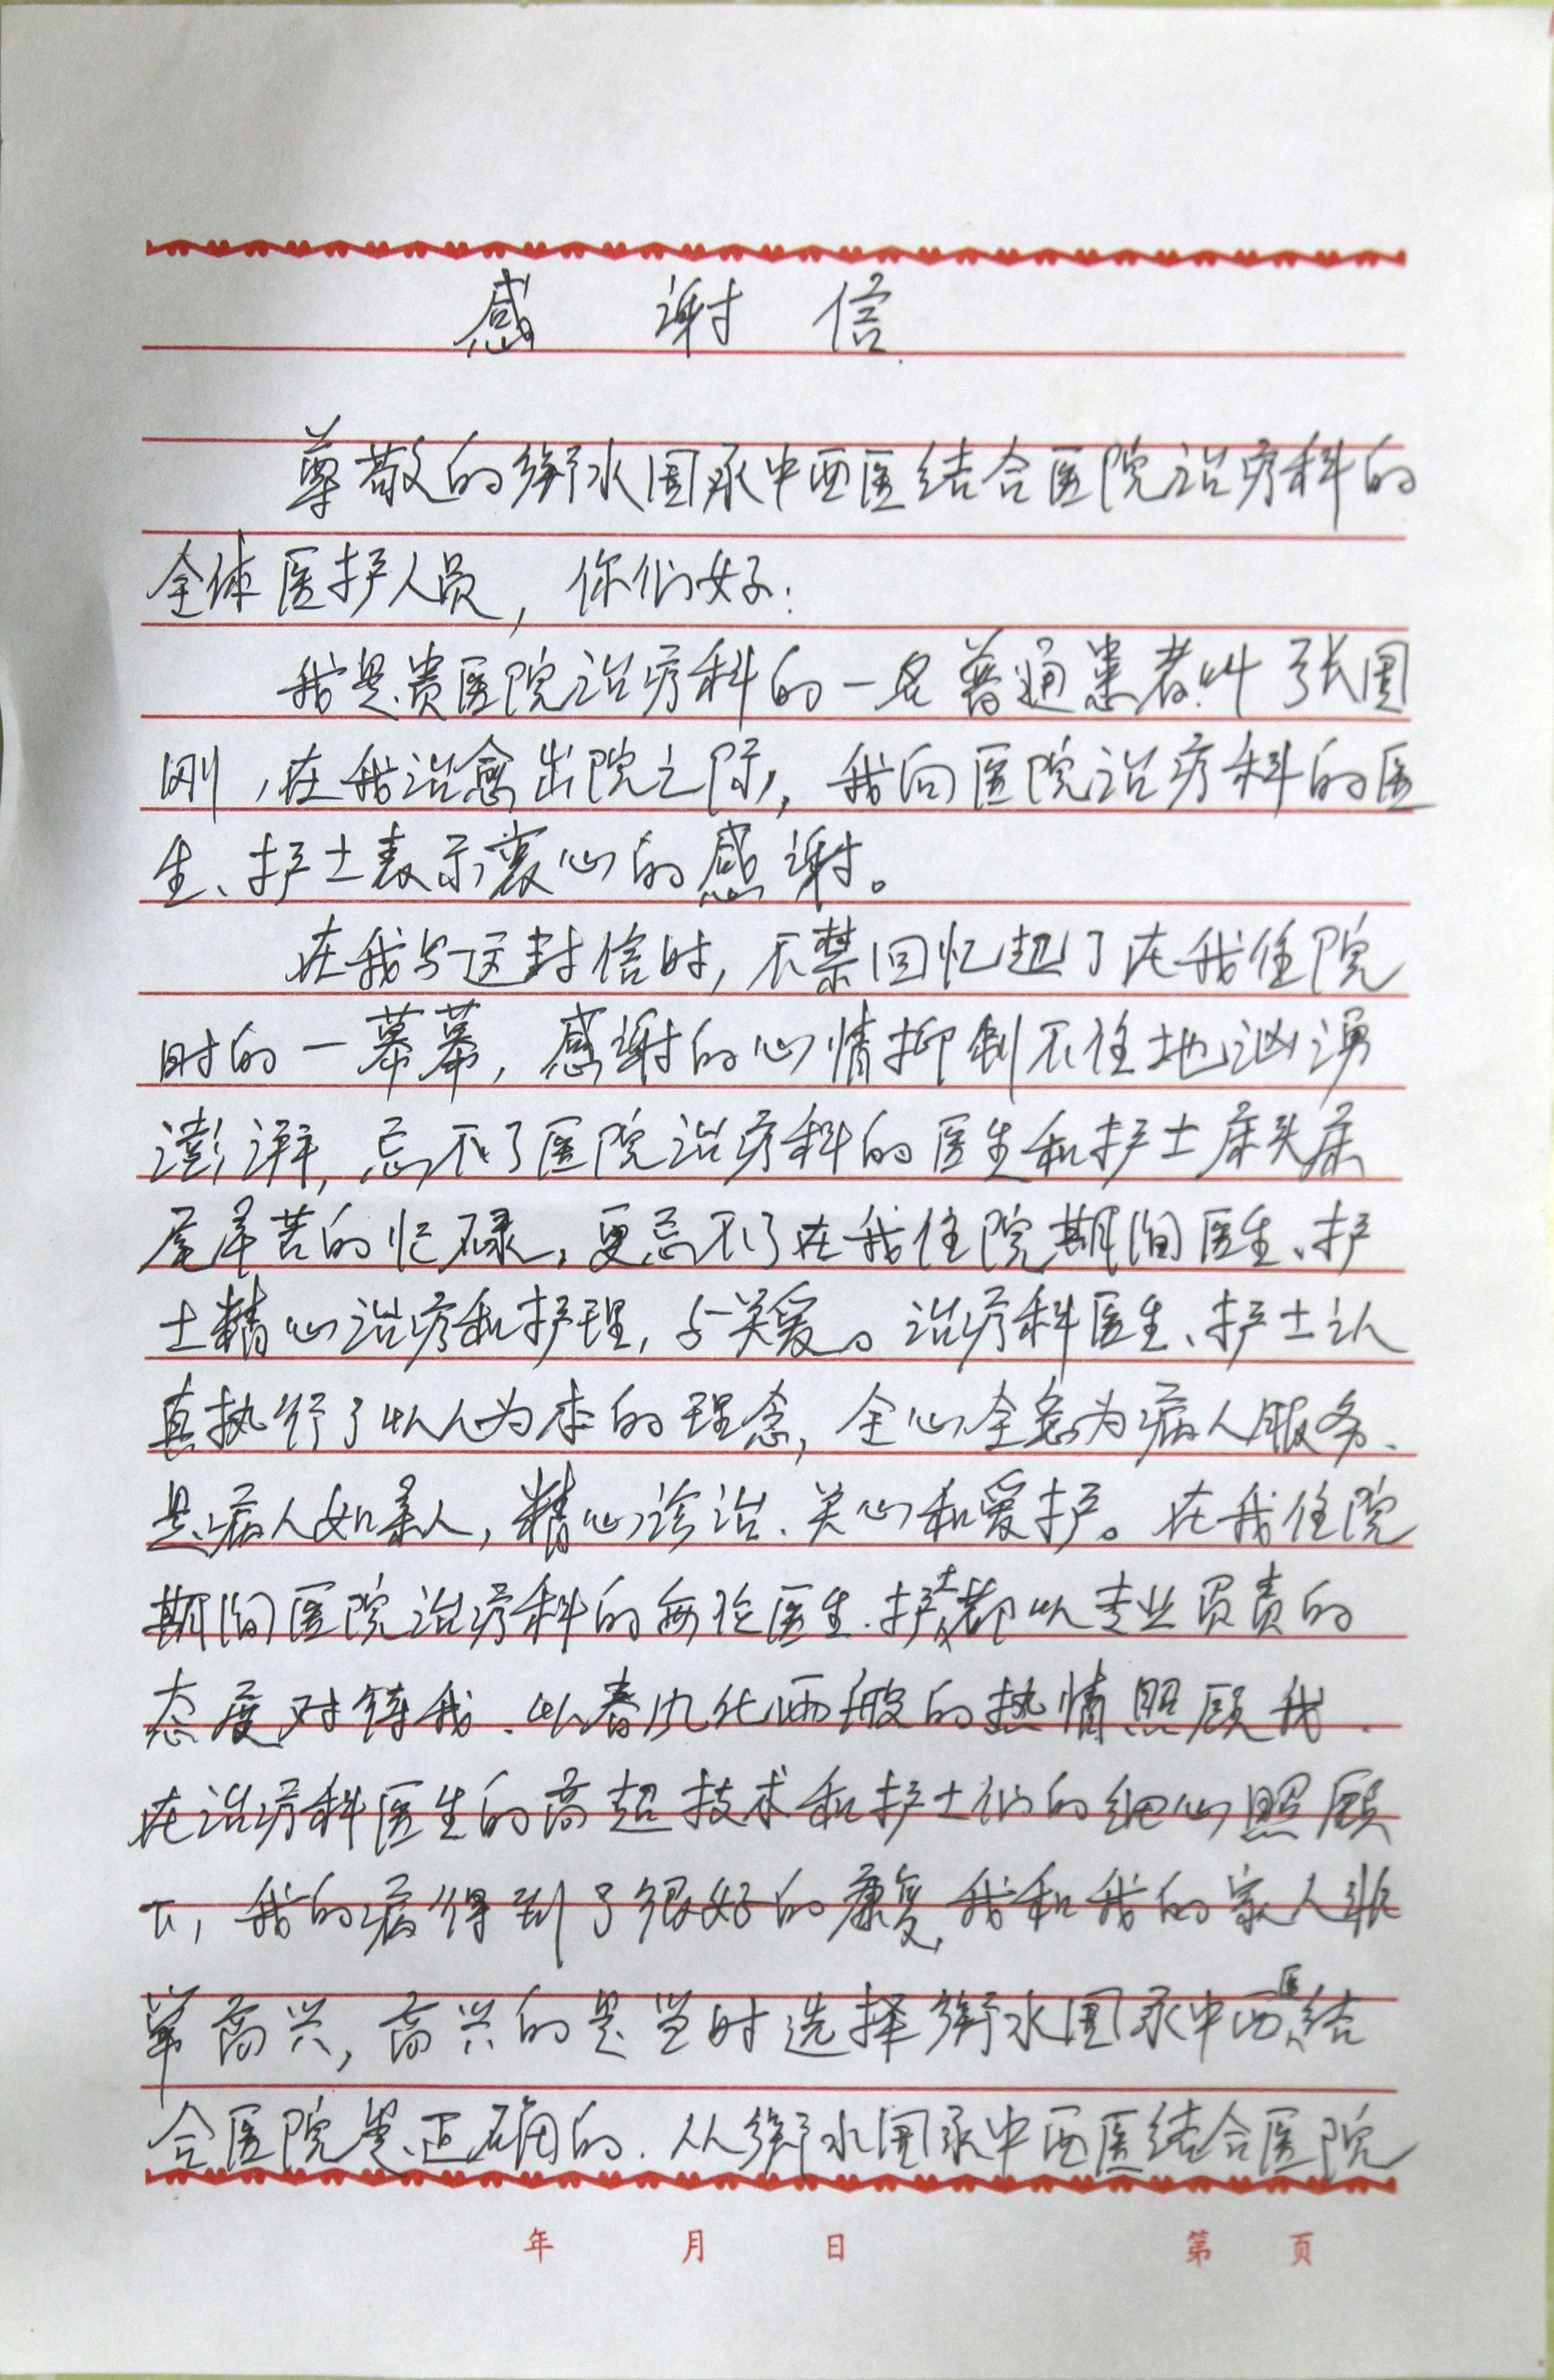 感谢信
尊敬的衡水国承中西医结合医院治疗科的
全体医护人员，你们好：
我是贵医院治疗科的一名普通患者叫张国
刚，在我治愈出院之际，我向医院治疗科的医
生、护士表示衷心的感谢。
在我写这封信时，不禁回忆起了在我住院
时的一幕幕，感谢的心情抑制不住地汹涌
澎湃，忘不了医院治疗科的医生和护士床头床
尾辛苦的忙碌，更忘不了在我住院期间医生、护
士精心治疗和护理，与关爱。治疗科医生、护士认
真执行了以人为本的理念，全心全意为病人服务、
是病人如亲人，精心诊治、关心和爱护。在我住院
期间医院治疗科的无论医生、护士都以专业负责的
态度对待我、以春风化雨般的热情照顾我、
在治疗科医生的高超技术和护士们的细心照顾
下，我的病得到了很好的康复，我和我的家人非
常高兴，高兴的是当时选择衡水国承中西医结
合医院是正确的、从衡水国承中西医结合医院
年 月 日 第 页